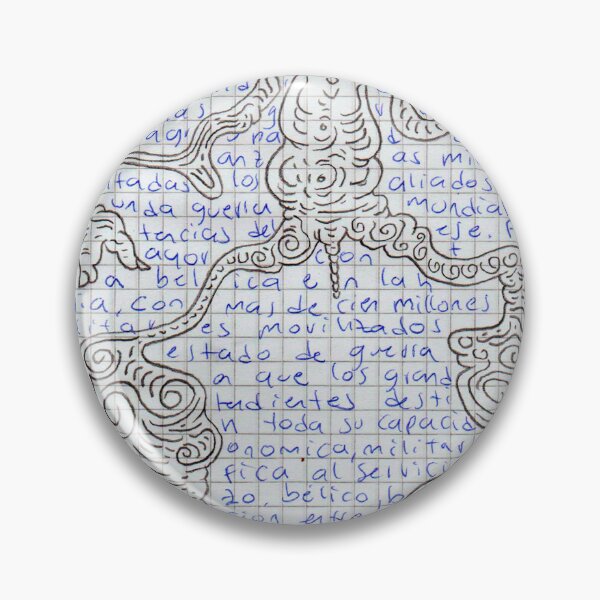 as g
agr na d
anz as mi
itadas los aliados
unda guerra mundia
tencias del eje. F
ayor con t
a bélica en la h
ia, con mas de cien millones
litar es movilizados
estado de guerra
a que los grand
tendientes desti
n toda su capacid
onomica, militar
fica al servici
zo, bélico, b
cion entre